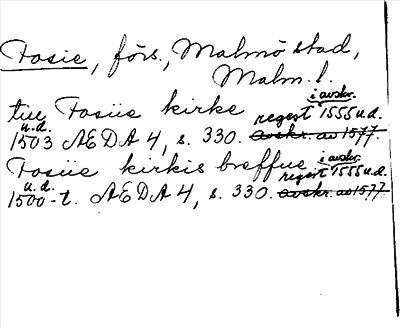 Fosie, förs., Malmö stad,
Malm. l.
i avskr.
till Fosiie kirke regest 1555 u.d.
u.d.
1503 AEDA 4, s. 330. avskr. av 1577.
i avskr.
Fosiie kirkis breffue regest 1555 u.d.
u.d.
1500-t. AEDA 4, s. 330. avskr. av 1577.